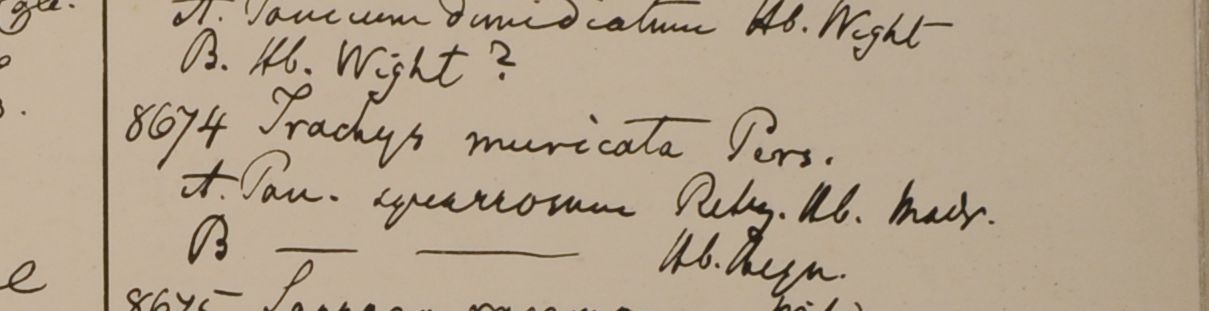 A. Panicum dimidiatum Hb. Wight
B. Hb. Wight ?
8674 Trachys muricata Pers.
A. Pan. squarrosum Retz. Hb. Madr.
B — — Hb. Heyn.
8675